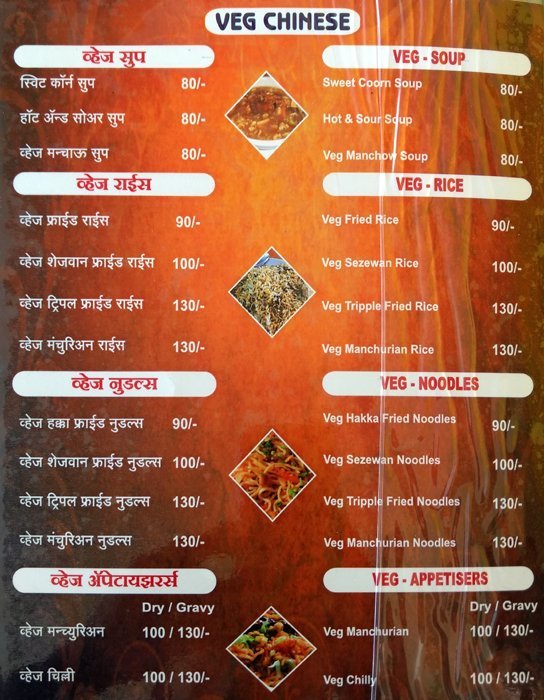 VEG CHINESE
व्हेज सुप
स्विट कॉर्न सुप 80/-
हॉट ॲन्ड सोअर सुप 80/-
व्हेज मन्चाऊ सुप 80/-
व्हेज राईस
व्हेज फ्राईड राईस 90/-
व्हेज शेजवान फ्राईड राईस 100/-
व्हेज ट्रिपल फ्राईड राईस 130/-
व्हेज मंचुरिअन राईस 130/-
व्हेज नुडल्स
व्हेज हक्का फ्राईड नुडल्स 90/-
व्हेज शेजवान फ्राईड नुडल्स 100/-
व्हेज ट्रिपल फ्राईड नुडल्स 130/-
व्हेज मंचुरिअन नुडल्स 130/-
व्हेज ॲपेटायझरर्स
Dry / Gravy
व्हेज मन्च्युरिअन 100 / 130/-
व्हेज चिल्ली 100 / 130/-
VEG - SOUP
Sweet Coorn Soup 80/-
Hot & Sour Soup 80/-
Veg Manchow Soup 80/-
VEG - RICE
Veg Fried Rice 90/-
Veg Sezewan Rice 100/-
Veg Tripple Fried Rice 130/-
Veg Manchurian Rice 130/-
VEG - NOODLES
Veg Hakka Fried Noodles 90/-
Veg Sezewan Noodles 100/-
Veg Tripple Fried Noodles 130/-
Veg Manchurian Noodles 130/-
VEG - APPETISERS
Dry / Gravy
Veg Manchurian 100 / 130/-
Veg Chilly 100 / 130/-